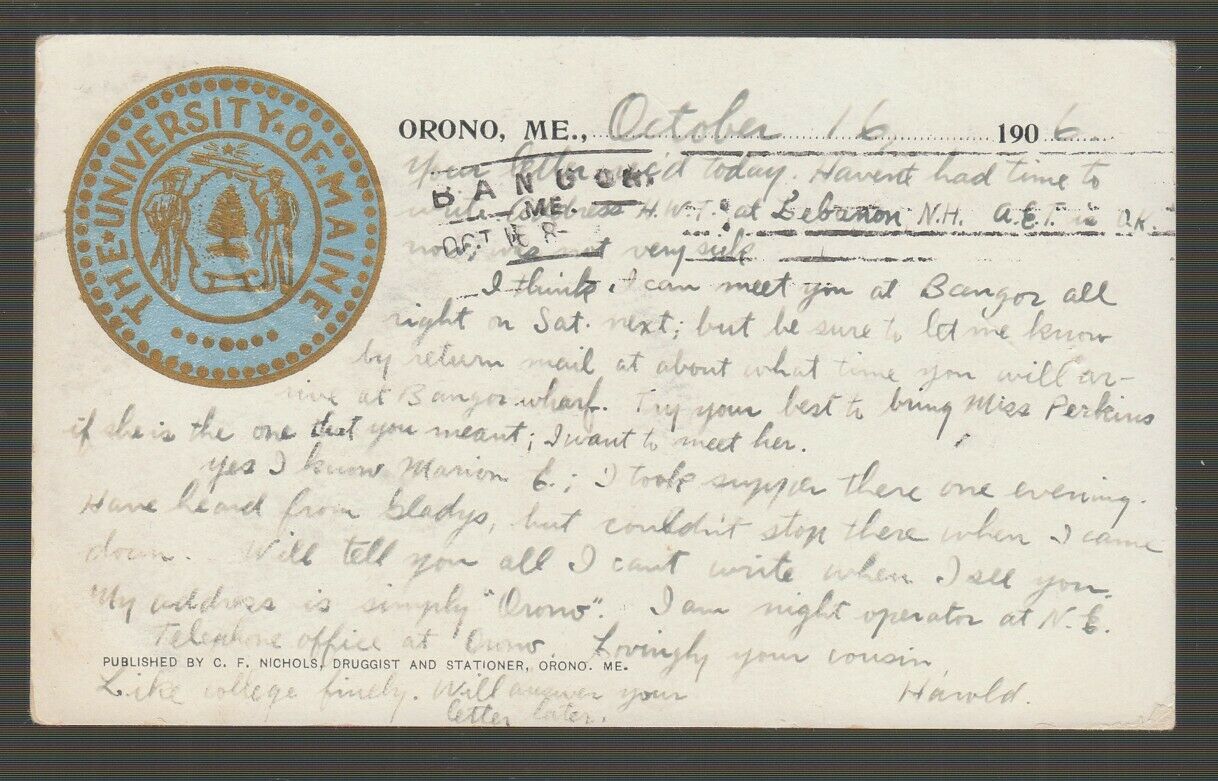 THE·UNIVERSITY·OF·MAINE
ORONO, ME., October 16, 1906
Your letter rec'd today. Haven't had time to
BANGOR
ME
OCT
write. Address H.W.T. at Lebanon N.H. A.E.T. is O.K.
now; was not very sick
I think I can meet you at Bangor all
right on Sat. next; but be sure to let me know
by return mail at about what time you will ar-
rive at Bangor wharf. Try your best to bring Miss Perkins
if she is the one that you meant; I want to meet her.
Yes I know Marion E.; I took supper there one evening.
Have heard from Gladys, but couldn't stop there when I came
down. Will tell you all I cant write when I see you.
My address is simply "Orono". I am night operator at N.E.
Telephone office at Orono. Lovingly your cousin,
PUBLISHED BY C. F. NICHOLS, DRUGGIST AND STATIONER, ORONO. ME.
Like college finely. Will answer your Harold.
letter later.